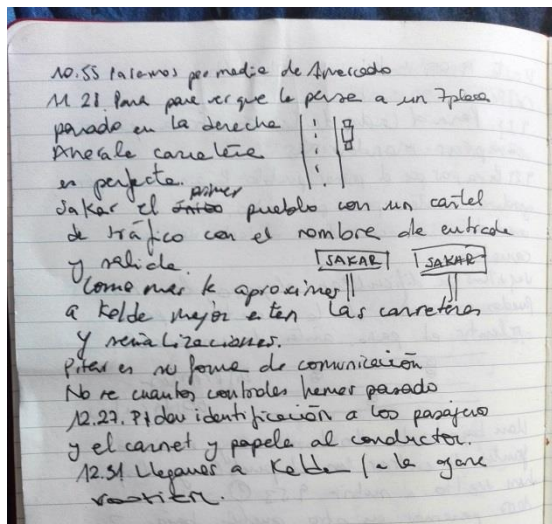 10.55 Paramos por medio de
11.28. Para para ver que le pasa a un 7 plazas
parado en la derecha
Ahora la carretera
es perfecta.
Sakar el primer pueblo con un cartel
de tráfico con el nombre de entrada
y salida.
SAKAR SAKAR
Como mas te aproximas
a Kelde mejor estan las carreteras
y señalizaciones.
Pitar es su forma de comunicación
No se cuantos controles hemos pasado
12.27. Piden identificación a los pasajeros
y el carnet y papeles al conductor.
12.51 Llegamos a Kelde